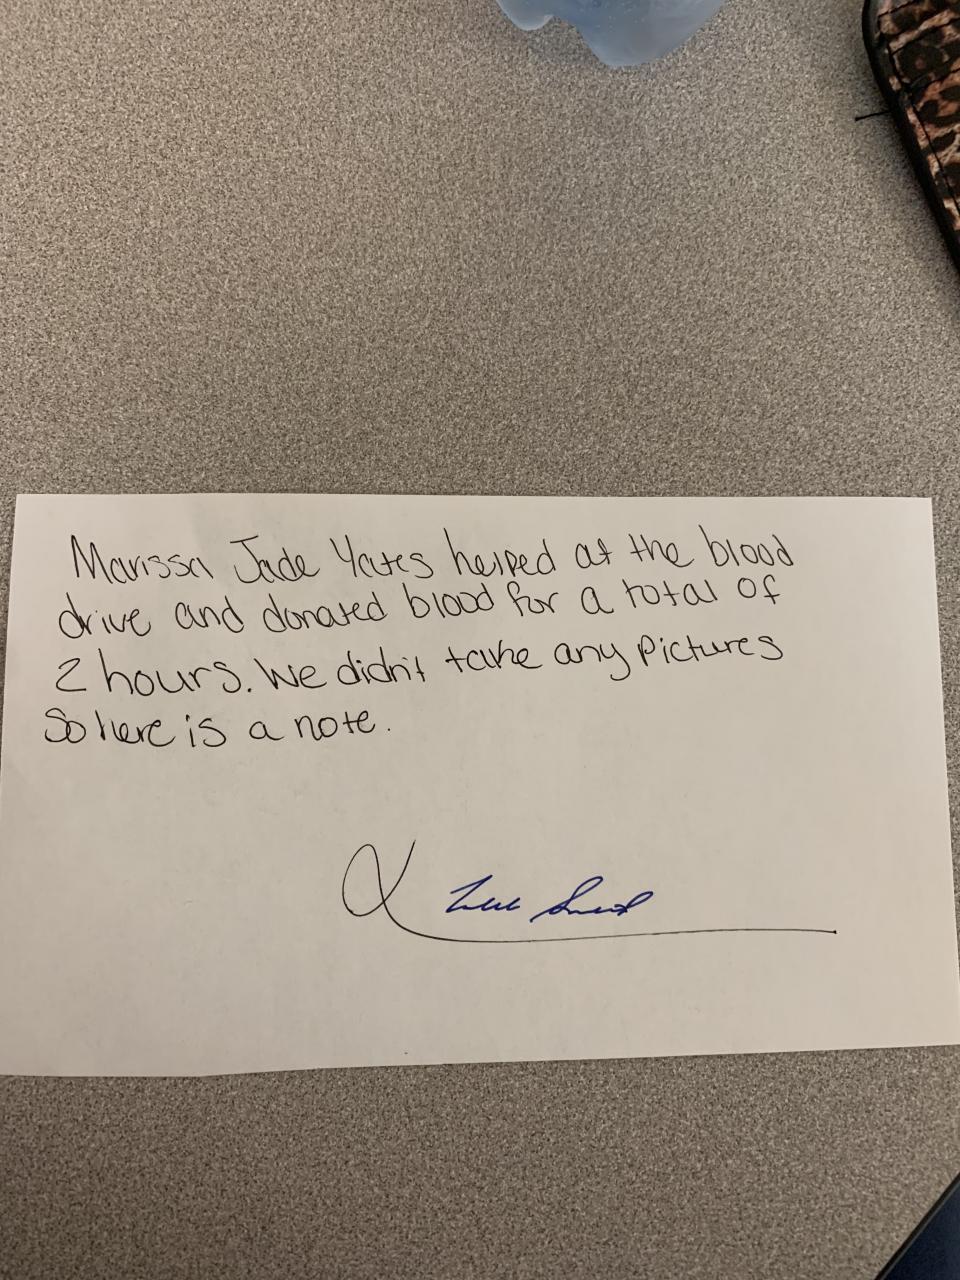 Marissa Jade Yates helped at the blood
drive and donated blood for a total of
2 hours. We didn't take any pictures
So here is a note.
X